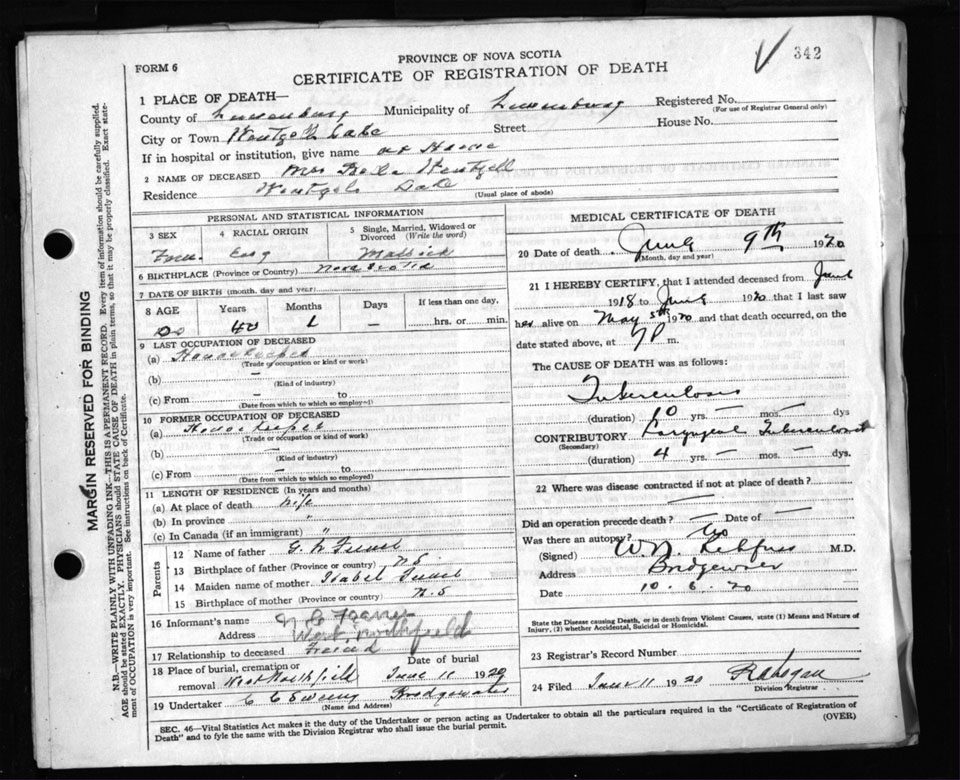 342
FORM 6
PROVINCE OF NOVA SCOTIA
CERTIFICATE OF REGISTRATION OF DEATH
1 PLACE OF DEATH—
County of Lunenburg Municipality of Lunenburg Registered No.
(For use of Registrar General only)
City or Town Street House No.
If in hospital or institution, give name at Home
2 NAME OF DECEASED Mrs Wentzell
Residence Lake (Usual place of abode)
PERSONAL AND STATISTICAL INFORMATION
3 SEX 4 RACIAL ORIGIN 5 Single, Married, Widowed or Divorced (Write the word)
Eng
6 BIRTHPLACE (Province or Country) Nova Scotia
7 DATE OF BIRTH (month, day and year)
8 AGE Years Months Days If less than one day,
40 1 — hrs. or min.
9 LAST OCCUPATION OF DECEASED
(a) Housekeeper
(Trade or occupation or kind of work)
(b) —
(Kind of industry)
(c) From — to
(Date from which to which so employed)
10 FORMER OCCUPATION OF DECEASED
(a) Housekeeper
(Trade or occupation or kind of work)
(b) —
(Kind of industry)
(c) From — to
(Date from which to which so employed)
11 LENGTH OF RESIDENCE (In years and months)
(a) At place of death life
(b) In province "
(c) In Canada (if an immigrant) "
Parents
12 Name of father
13 Birthplace of father (Province or country) N.S.
14 Maiden name of mother Isabel
15 Birthplace of mother (Province or country) N.S
16 Informant's name
Address West Northfield
17 Relationship to deceased Friend
18 Place of burial, cremation or removal West Northfield Date of burial June 11 1920
19 Undertaker Bridgewater
(Name and Address)
MEDICAL CERTIFICATE OF DEATH
20 Date of death June 9th 1920
(Month, day and year)
21 I HEREBY CERTIFY, that I attended deceased from June
1918 to June 1920 that I last saw
her alive on May 5th 1920 and that death occurred, on the
date stated above, at 7 P m.
The CAUSE OF DEATH was as follows:
Tuberculosis
(duration) 10 yrs. — mos. — dys
CONTRIBUTORY Laryngeal Tuberculosis
(Secondary)
(duration) 4 yrs. — mos. — dys.
22 Where was disease contracted if not at place of death?
—
Did an operation precede death? — Date of —
Was there an autopsy? No
(Signed) M.D.
Address Bridgewater
Date 10.6.20
State the Disease causing Death, or in death from Violent Causes, state (1) Means and Nature of
Injury, (2) whether Accidental, Suicidal or Homicidal.
23 Registrar's Record Number
24 Filed June 11 1920
Division Registrar
SEC. 46—Vital Statistics Act makes it the duty of the Undertaker or person acting as Undertaker to obtain all the particulars required in the "Certificate of Registration of
Death" and to fyle the same with the Division Registrar who shall issue the burial permit.
(OVER)
MARGIN RESERVED FOR BINDING
N.B.—WRITE PLAINLY WITH UNFADING INK—THIS IS A PERMANENT RECORD. Every item of information should be carefully supplied.
AGE should be stated EXACTLY. PHYSICIANS should STATE CAUSE OF DEATH in plain terms, so that it may be properly classified. Exact statement
of OCCUPATION is very important. See instructions on back of Certificate.